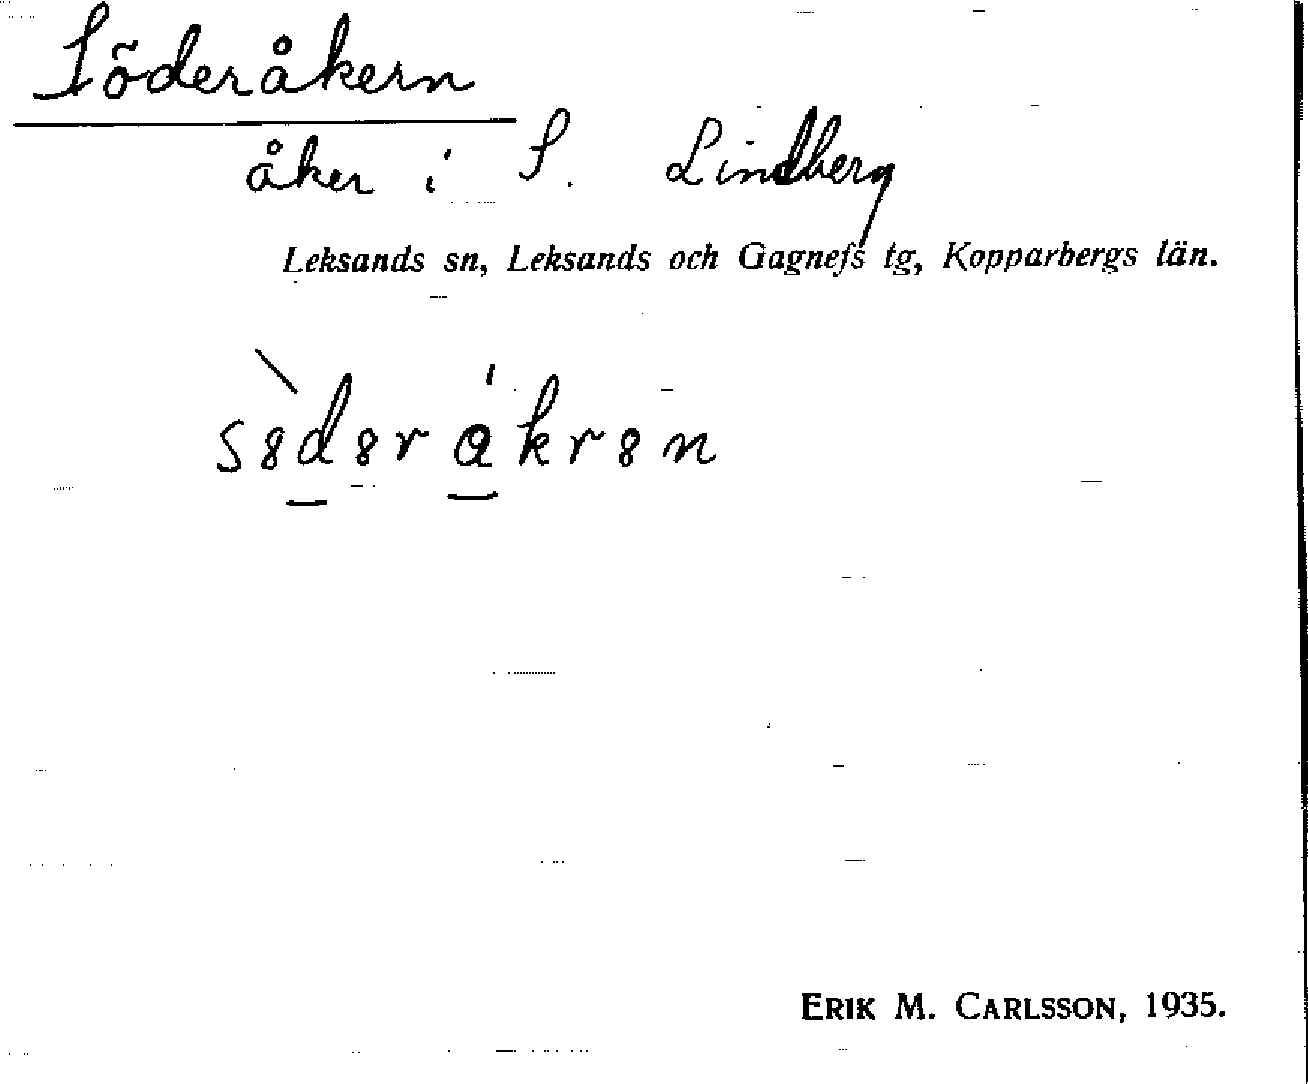 Söderåkern
åker i S. Lindberg
Leksands sn, Leksands och Gagnefs tg, Kopparbergs län.
s8d8råkr8n
ERIK M. CARLSSON, 1935.